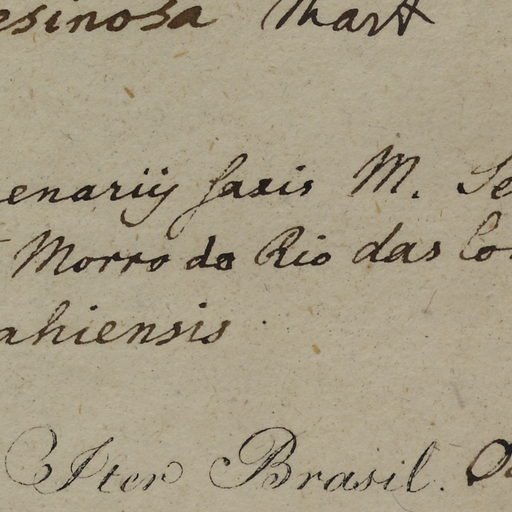 esinosa Mart
enariij saxis M. Se
Morro do Rio das Co
ahiensis
Iter Brasil.